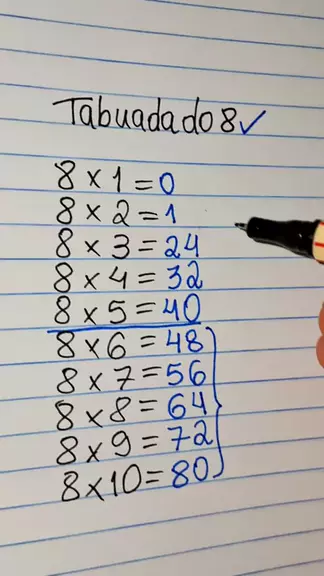 Tabuada do 8 ✓
8 × 1 = 0
8 × 2 = 1
8 × 3 = 24
8 × 4 = 32
8 × 5 = 40
8 × 6 = 48
8 × 7 = 56
8 × 8 = 64
8 × 9 = 72
8 × 10 = 80